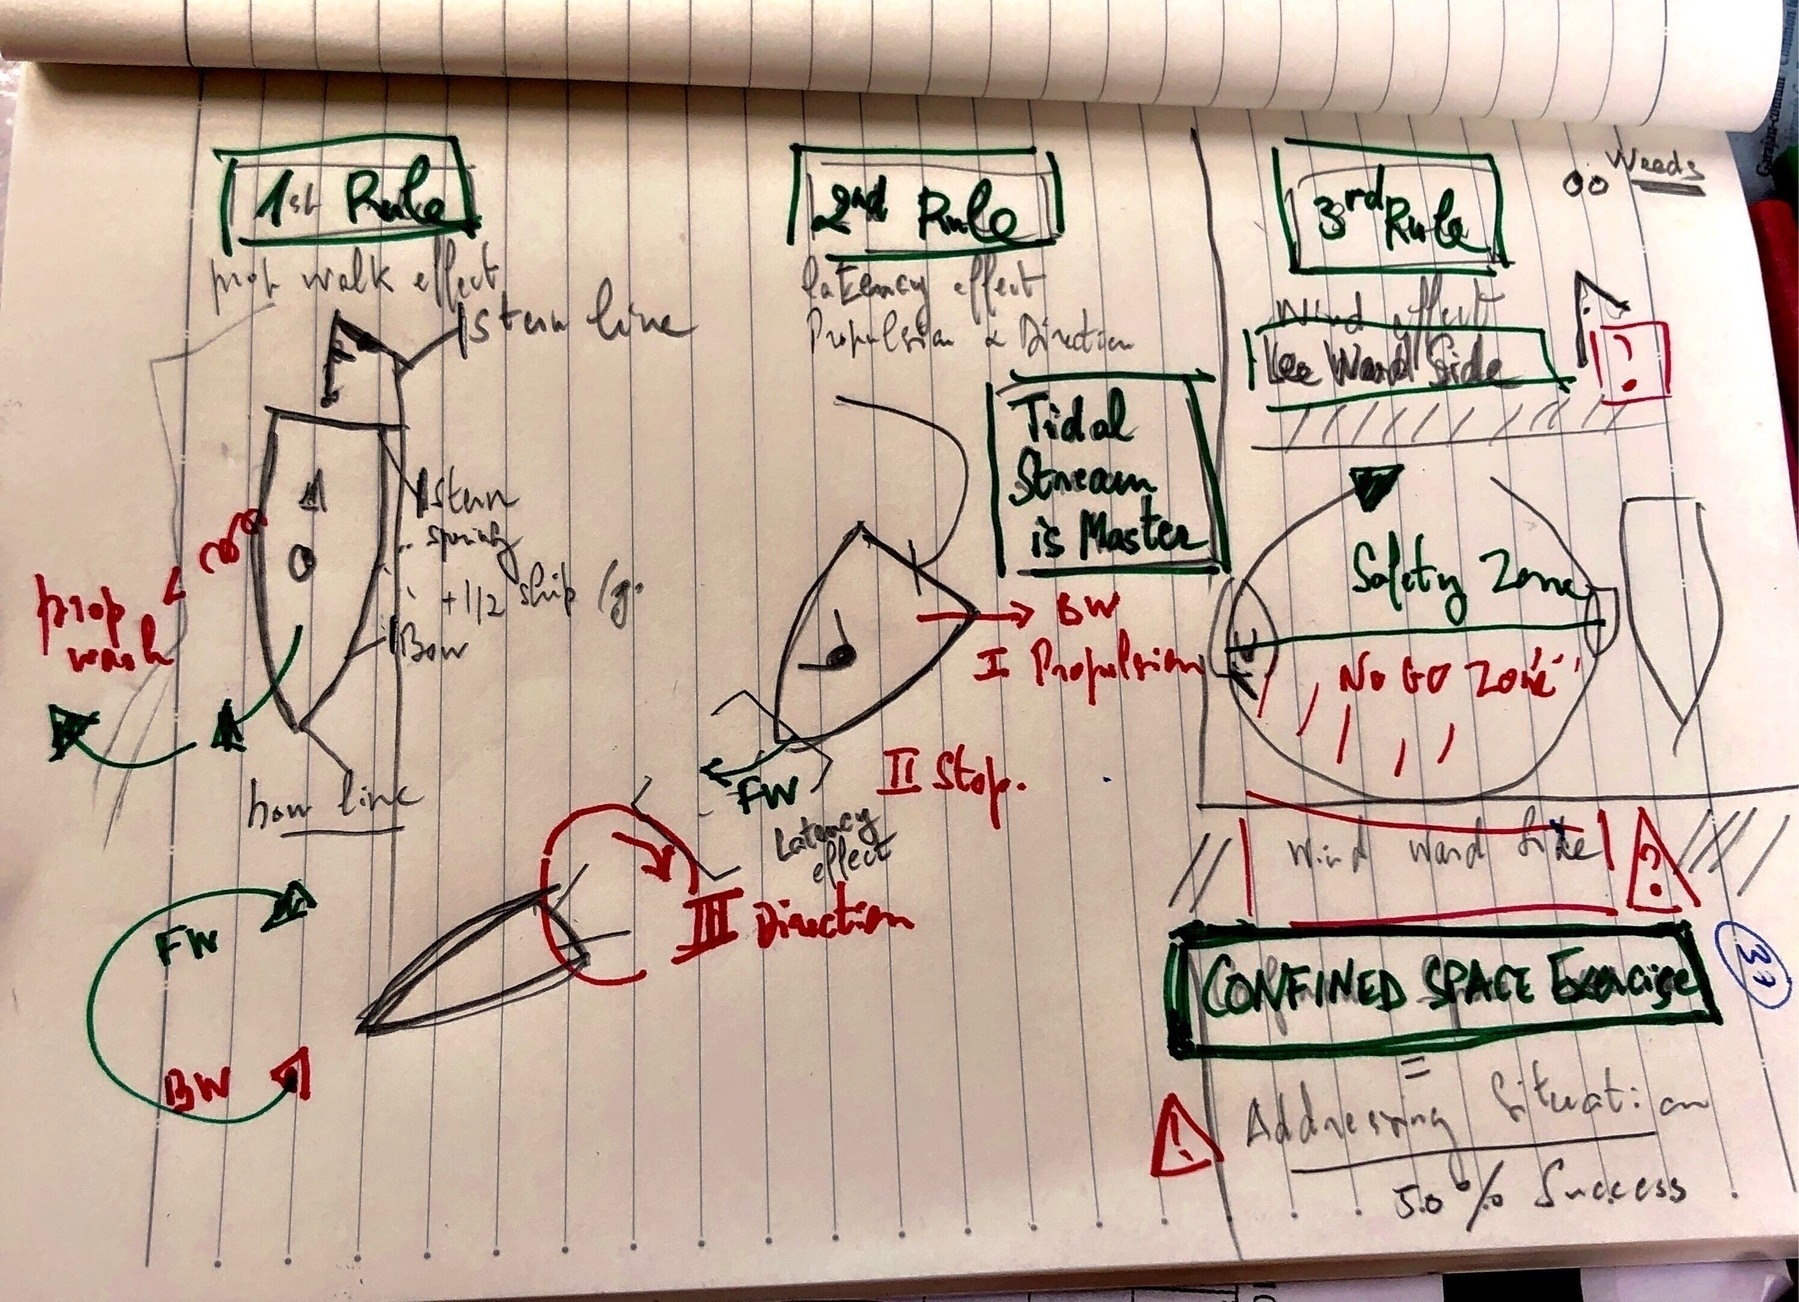 1st Rule
prop walk effect
Stern line
Stern
spring
+ 1/2 ship
Bow
prop
wash
bow line
FW
BW
2nd Rule
latency effect
Propulsion & Direction
Tidal
Stream
is Master
BW
I Propulsion
II Stop.
FW
Latency
effect
III Direction
3rd Rule
Weeds
Wind effect
Lee Ward Side
Safety Zone
No GO Zone
Wind ward Side
CONFINED SPACE Exercise
=
Addressing Situation
50% Success